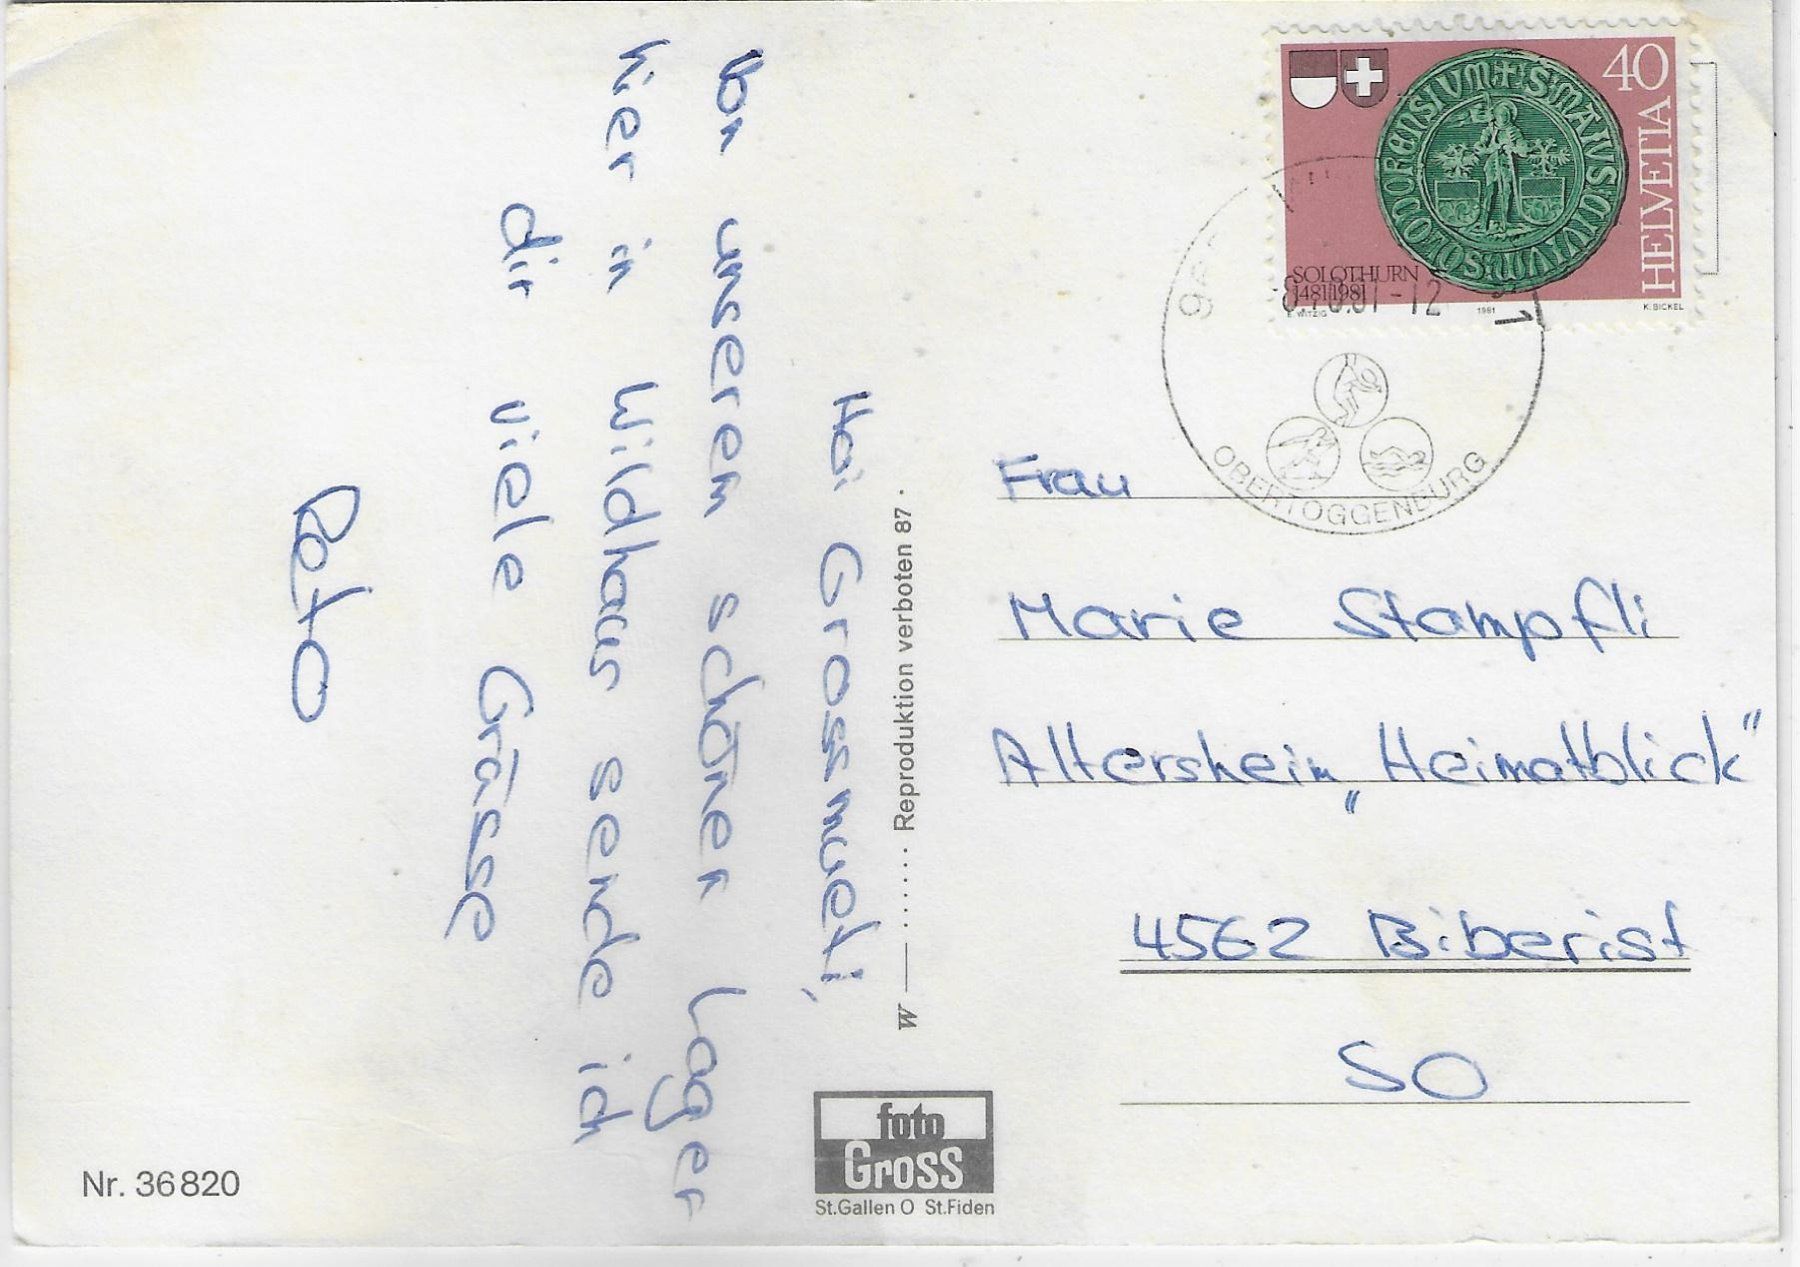 Hoi Grossmueti,
Von unserem schönen Lager
hier in Wildhaus sende ich
dir viele Grüsse
Reto
W — ...... Reproduktion verboten 87.
foto
Gross
St.Gallen O St.Fiden
Nr. 36820
40
HELVETIA
SOLOTHURN
1481 1981
E. WITZIG
1981
K. BICKEL
81-12
OBERTOGGENBURG
Frau
Marie Stampfli
Altersheim „Heimatblick"
4562 Biberist
SO